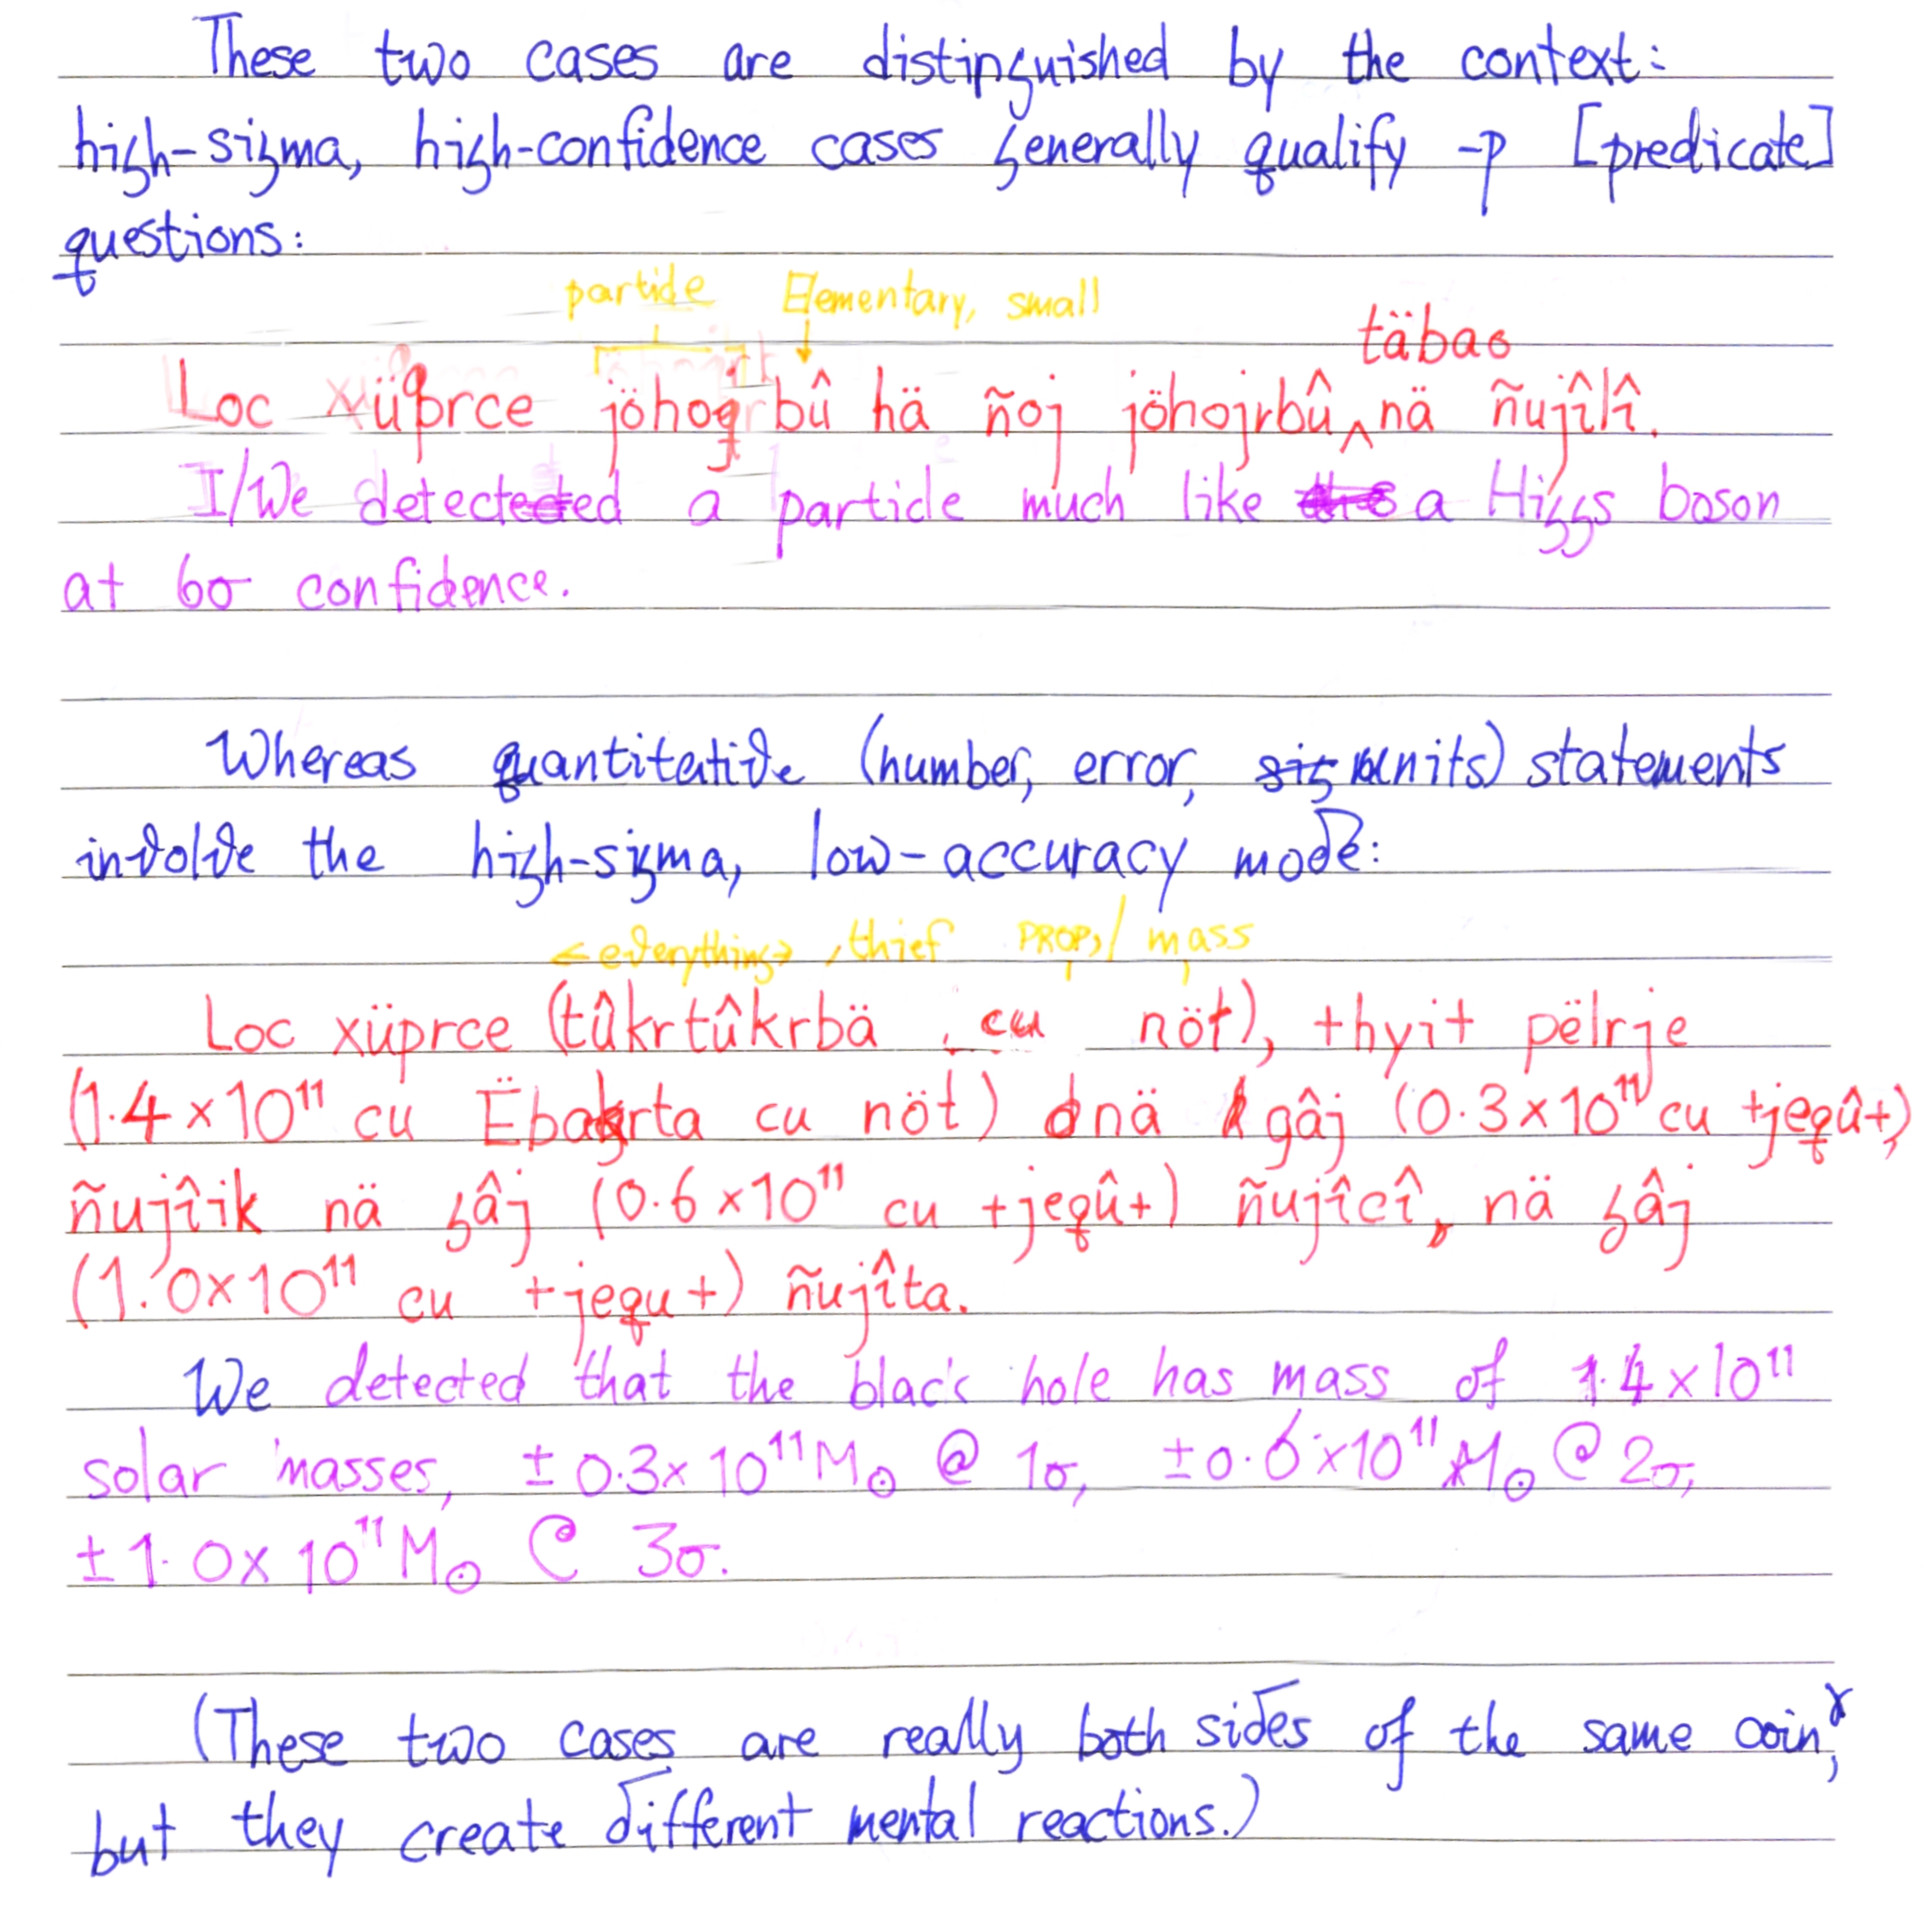 These two cases are distinguished by the context:
high-sigma, high-confidence cases generally qualify -p [predicate]
questions:
particle Elementary, small
täbao
Loc xüprce jöhojrbû hä ñoj jöhojrbû ^ nä ñujîlî.
I/We detected a particle much like a Higgs boson
at 6σ confidence.
Whereas quantitative (number, error, units) statements
involve the high-sigma, low-accuracy mode:
<everything> , thief PROP, / mass
Loc xüprce (tûkrtûkrbä cu nöt), +hyit pëlrje
(1.4×10¹¹ cu Ëbagrta cu nöt) nä gâj (0.3×10¹¹ cu +jeqû+)
ñujîik nä gâj (0.6×10¹¹ cu +jeqû+) ñujîcî, nä gâj
(1.0×10¹¹ cu +jequ+) ñujîta.
We detected that the black hole has mass of 1.4×10¹¹
solar masses, ±0.3×10¹¹M☉ @ 1σ, ±0.6×10¹¹M☉ @ 2σ,
±1.0×10¹¹M☉ @ 3σ.
(These two cases are really both sides of the same coin,
but they create different mental reactions.)